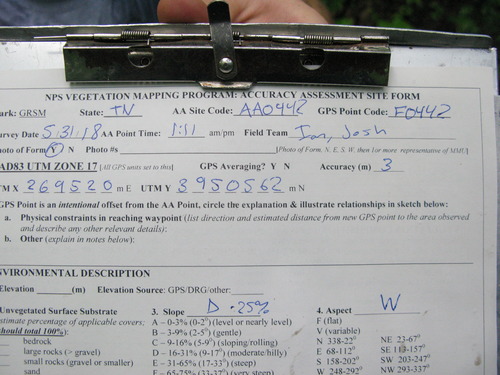 NPS VEGETATION MAPPING PROGRAM: ACCURACY ASSESSMENT SITE FORM
ark: GRSM State: TN AA Site Code: AA0442 GPS Point Code: E0442
urvey Date 5/31/18 AA Point Time: 1:11 am/pm Field Team Ian, Josh
hoto of Form Y N Photo #s [Photo of Form, N, E, S, W, then 1or more representative of MMU]
AD83 UTM ZONE 17 [All GPS units set to this] GPS Averaging? Y N Accuracy (m) 3
TM X 269520 m E UTM Y 3950562 m N
GPS Point is an intentional offset from the AA Point, circle the explanation & illustrate relationships in sketch below:
a. Physical constraints in reaching waypoint (list direction and estimated distance from new GPS point to the area observed
and describe any other relevant details):
b. Other (explain in notes below):
NVIRONMENTAL DESCRIPTION
Elevation (m) Elevation Source: GPS/DRG/other:
Unvegetated Surface Substrate 3. Slope D - 25% 4. Aspect W
stimate percentage of applicable covers; A – 0-3% (0-2°) (level or nearly level) F (flat)
hould total 100%): B – 3-9% (2-5°) (gentle) V (variable)
bedrock C – 9-16% (5-9°) (sloping/rolling) N 338-22° NE 23-67°
large rocks (> gravel) D – 16-31% (9-17°) (moderate/hilly) E 68-112° SE 113-157°
small rocks (gravel or smaller) E – 31-65% (17-33°) (steep) S 158-202° SW 203-247°
sand F – 65-75% (33-37°) (very steep) W 248-292° NW 293-337°